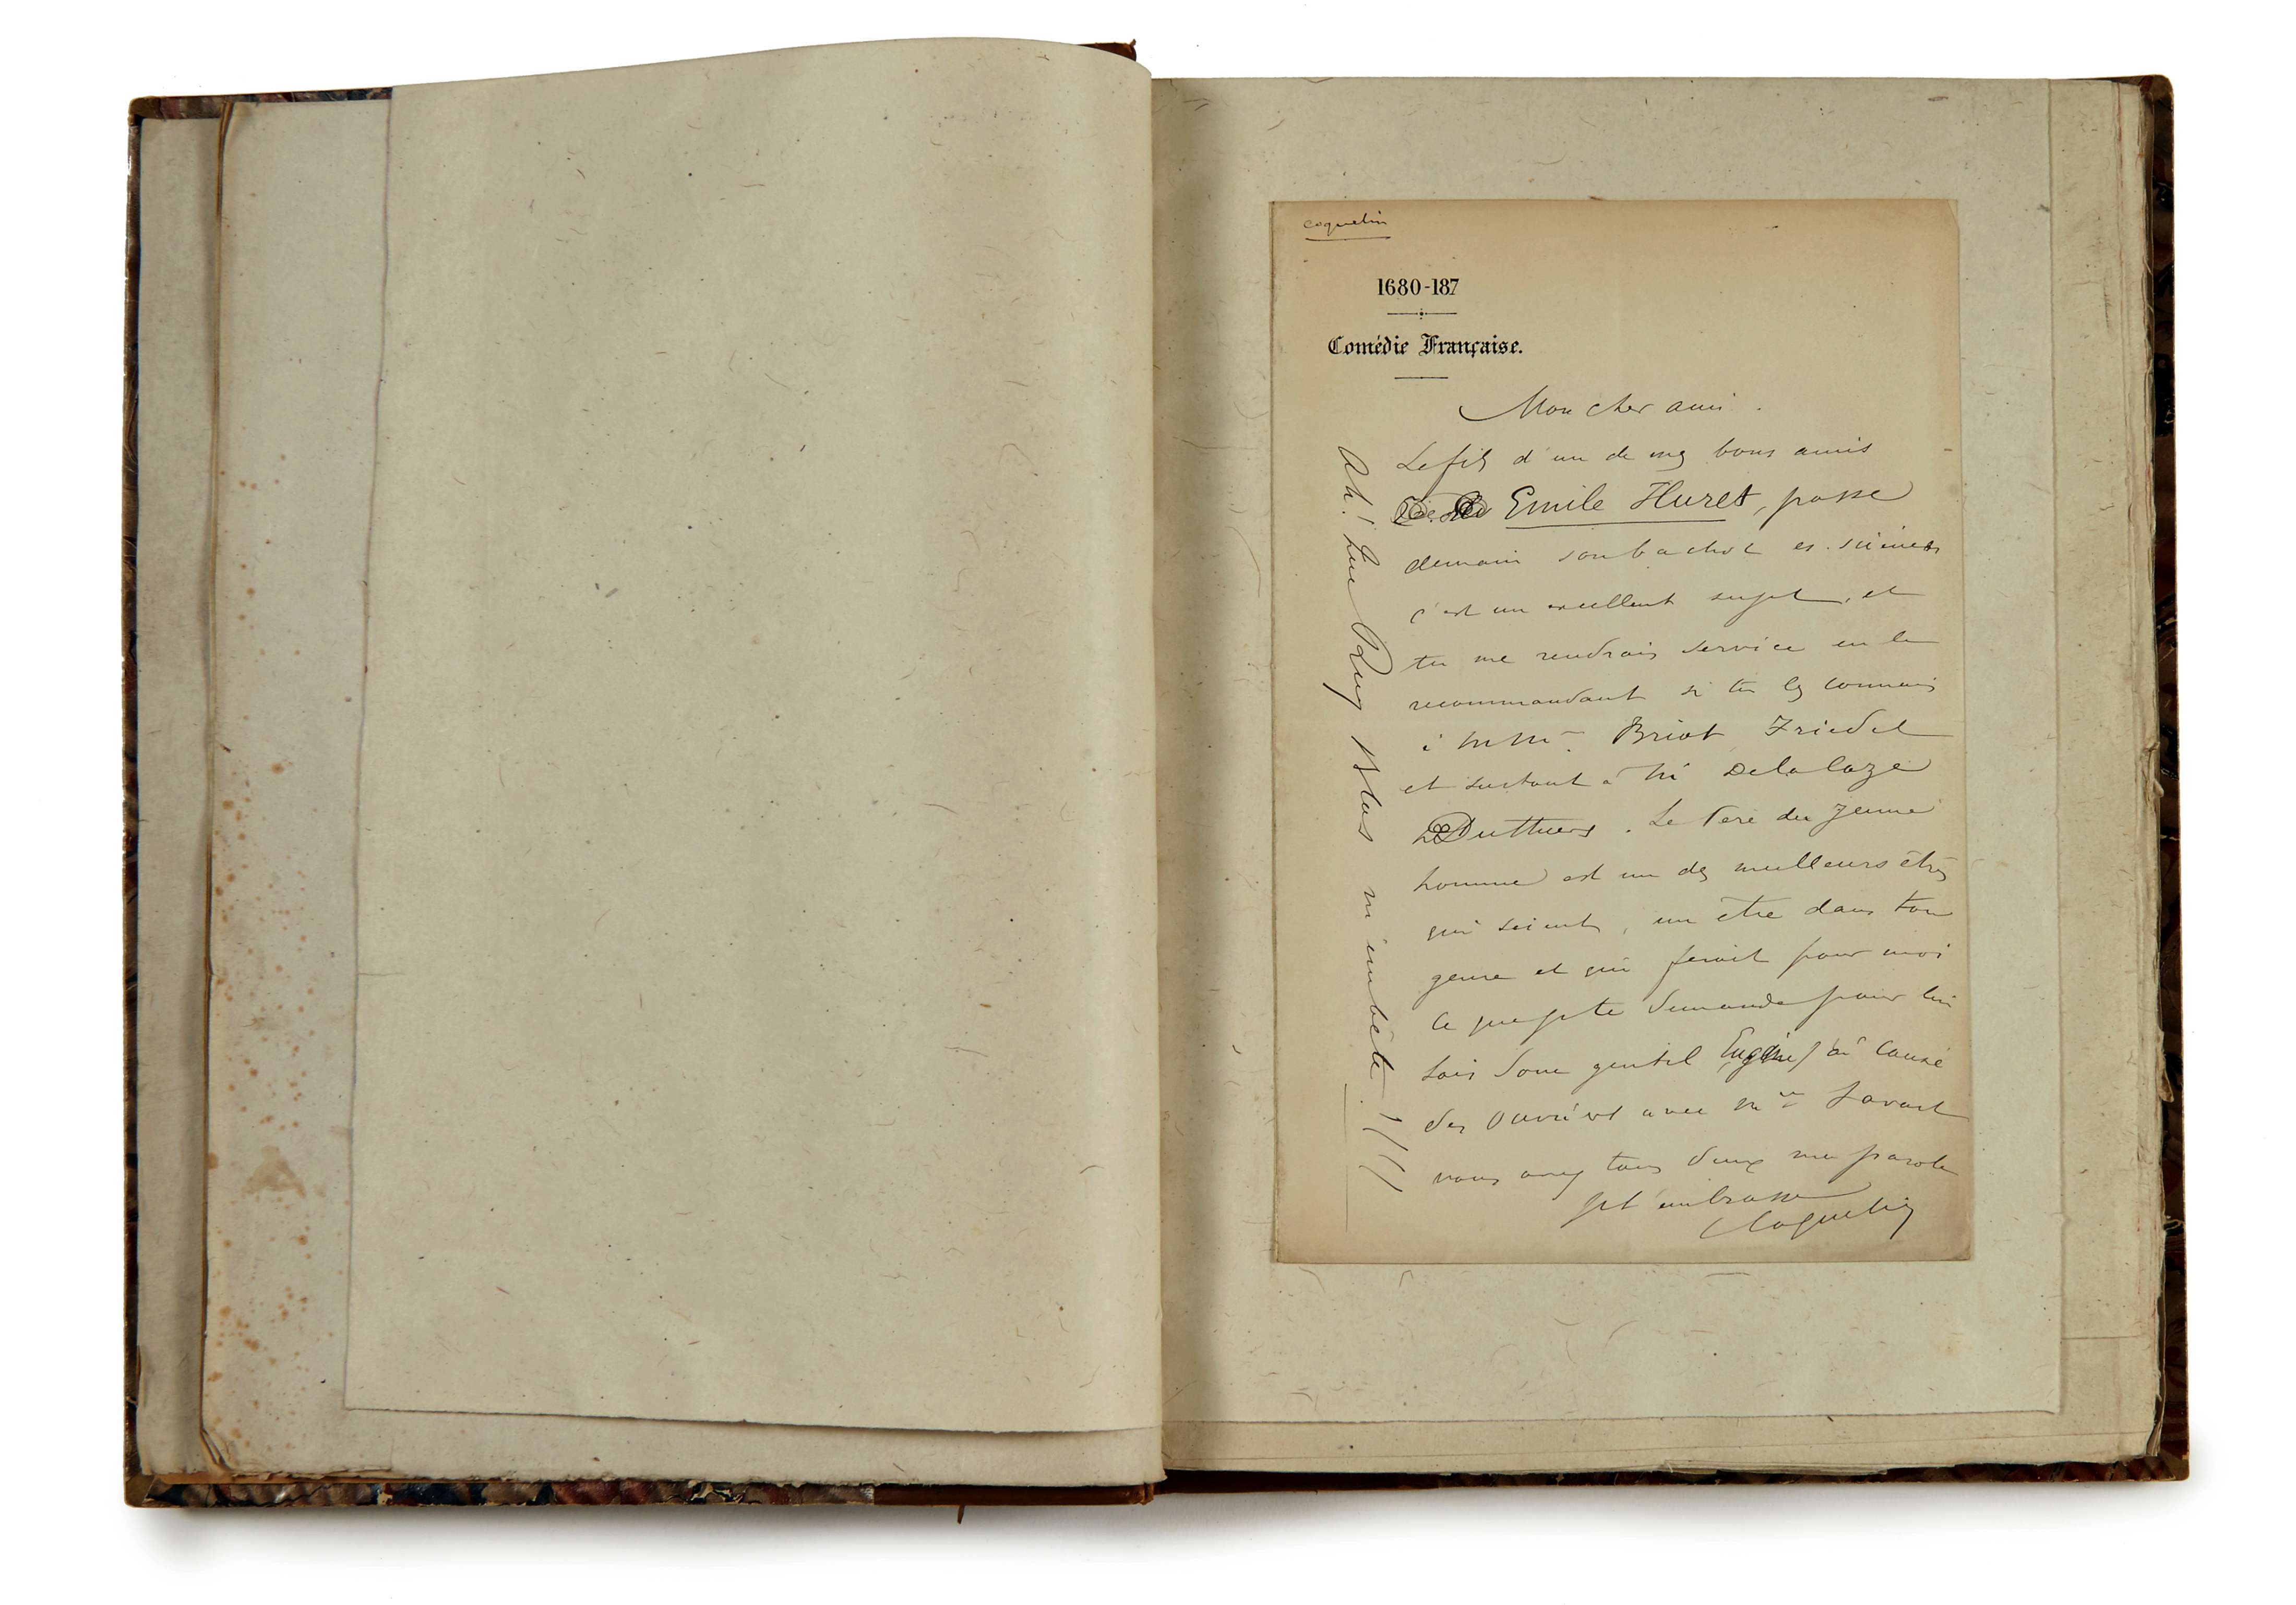 Coquelin
1680-187
Comédie Française.
Mon cher ami.
Le fils d'un de mes bons amis
Emile Huret, passe
demain son bachot es. sciences
c'est un excellent sujet, et
tu me rendrais service en le
recommandant si tu les connais
à MM. Briot Friedel
et surtout à M. Delalaze
Duttuers. Le Père du jeune
homme est un des meilleurs êtres
qui soient, un être dans ton
genre et qui ferait pour moi
ce que je te demande pour lui
sois donc gentil Eugène, j'ai causé
des avec Mr Favart
vous avez tous deux ma parole
je t'embrasse
Coquelin
Ah! que Ruy Blas m'embête!!!